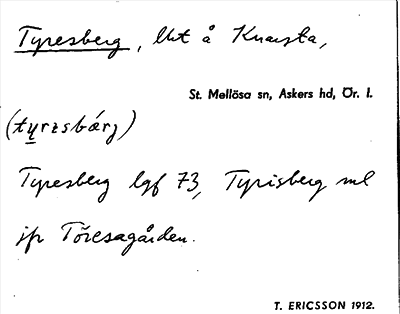 Tyresberg, lht å Knaysta,
St. Mellösa sn, Askers hd, Ör. l.
(tyrɛsbærj)
Tyresberg lgf 73, Tyrisberg ml
jfr Töresagården.
T. ERICSSON 1912.